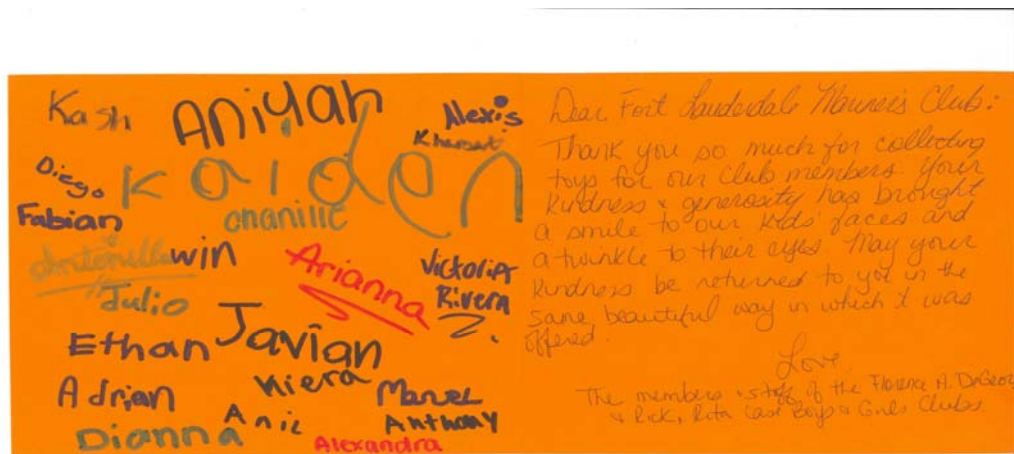 Kash
Aniyah
Alexis
Diego
Kaiden
Fabian
win
Arianna
Victoria
Rivera
Julio
Ethan
Javian
Kiera
Adrian
Manuel
Anthony
Dianna
Alexandra
Dear Fort Lauderdale Mariner's Club:
Thank you so much for collecting
toys for our Club members. Your
kindness & generosity has brought
a smile to our kids' faces and
a twinkle to their eyes. May your
kindness be returned to you in the
same beautiful way in which it was
offered.
Love
The members & staff of the Florence A. DeGeorge
& Rick & Rita Case Boys & Girls Clubs.